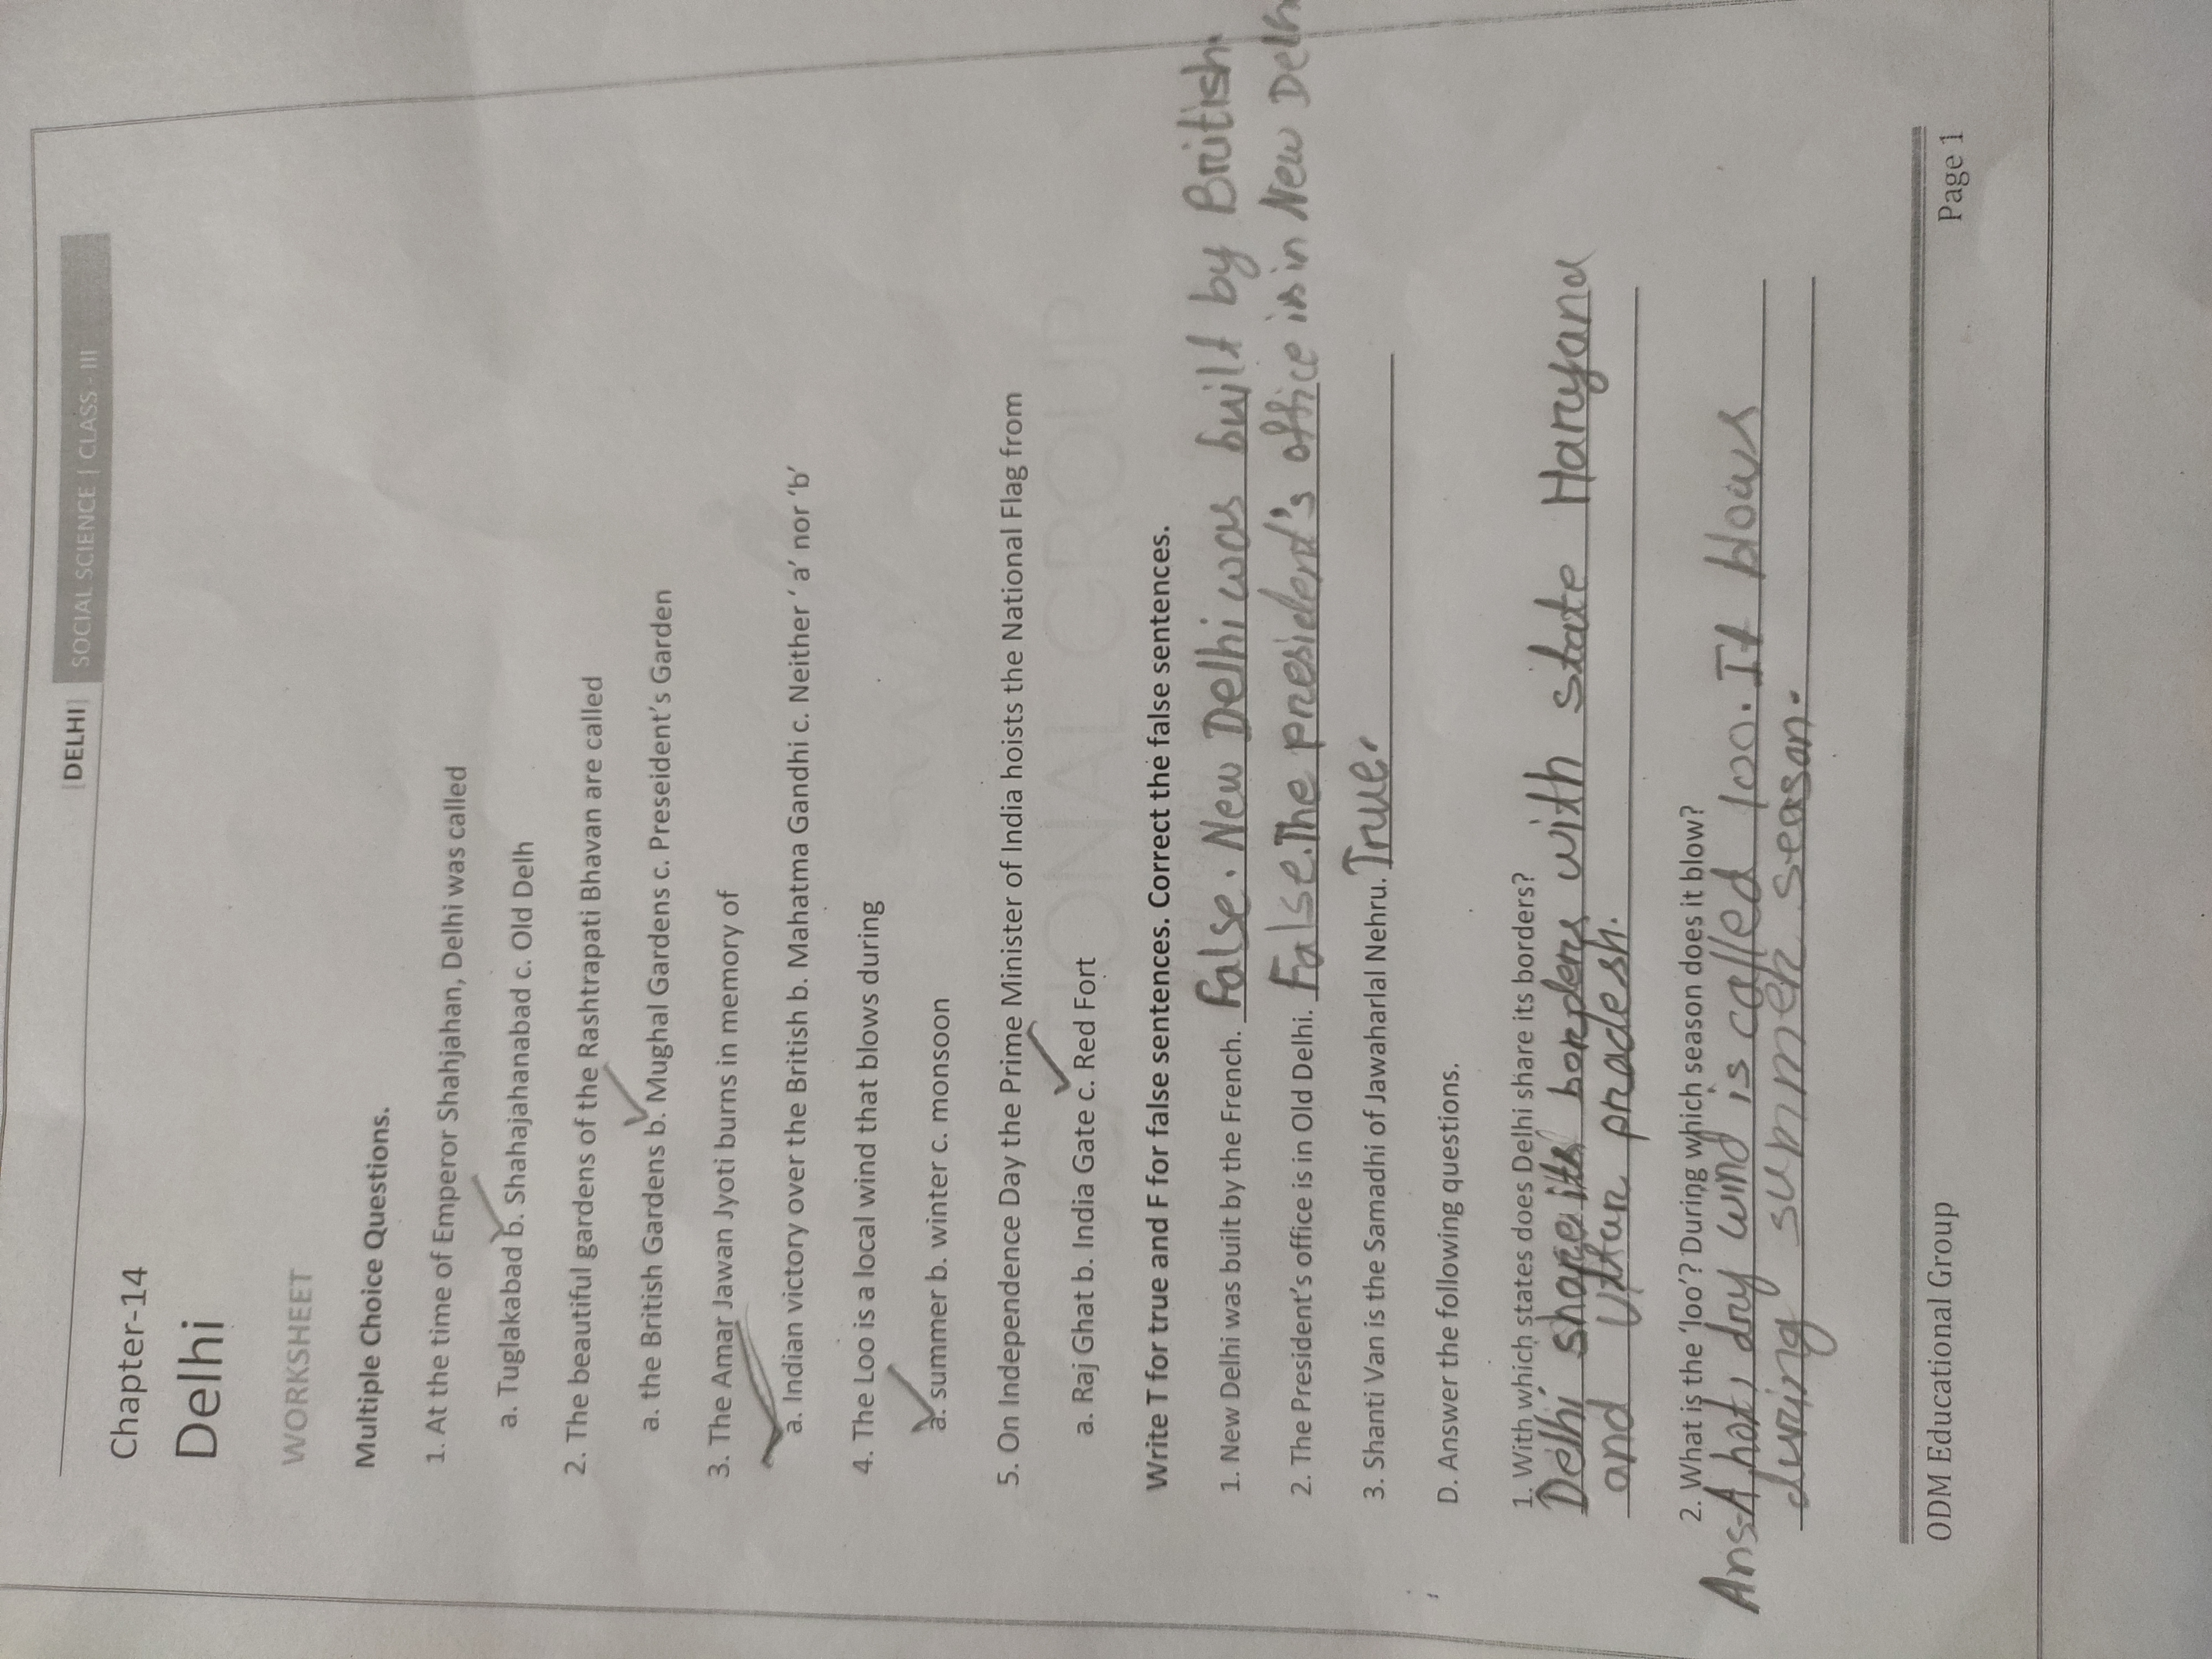 [DELHI] SOCIAL SCIENCE | CLASS- III
Chapter-14
Delhi
WORKSHEET
Multiple Choice Questions.
1. At the time of Emperor Shahjahan, Delhi was called
a. Tuglakabad b. Shahajahanabad c. Old Delh
2. The beautiful gardens of the Rashtrapati Bhavan are called
a. the British Gardens b. Mughal Gardens c. Preseident's Garden
3. The Amar Jawan Jyoti burns in memory of
a. Indian victory over the British b. Mahatma Gandhi c. Neither ' a' nor 'b'
4. The Loo is a local wind that blows during
a. summer b. winter c. monsoon
5. On Independence Day the Prime Minister of India hoists the National Flag from
a. Raj Ghat b. India Gate c. Red Fort
Write T for true and F for false sentences. Correct the false sentences.
1. New Delhi was built by the French. False. New Delhi was built by British.
2. The President's office is in Old Delhi. False. The president's office is in New Delh
3. Shanti Van is the Samadhi of Jawaharlal Nehru. True.
D. Answer the following questions.
1. With which states does Delhi share its borders?
Delhi share its borders with state Haryana
and Uttar pradesh.
2. What is the 'loo'? During which season does it blow?
Ans-A hot, dry wind is called loo. It blows
during summer season.
ODM Educational Group Page 1